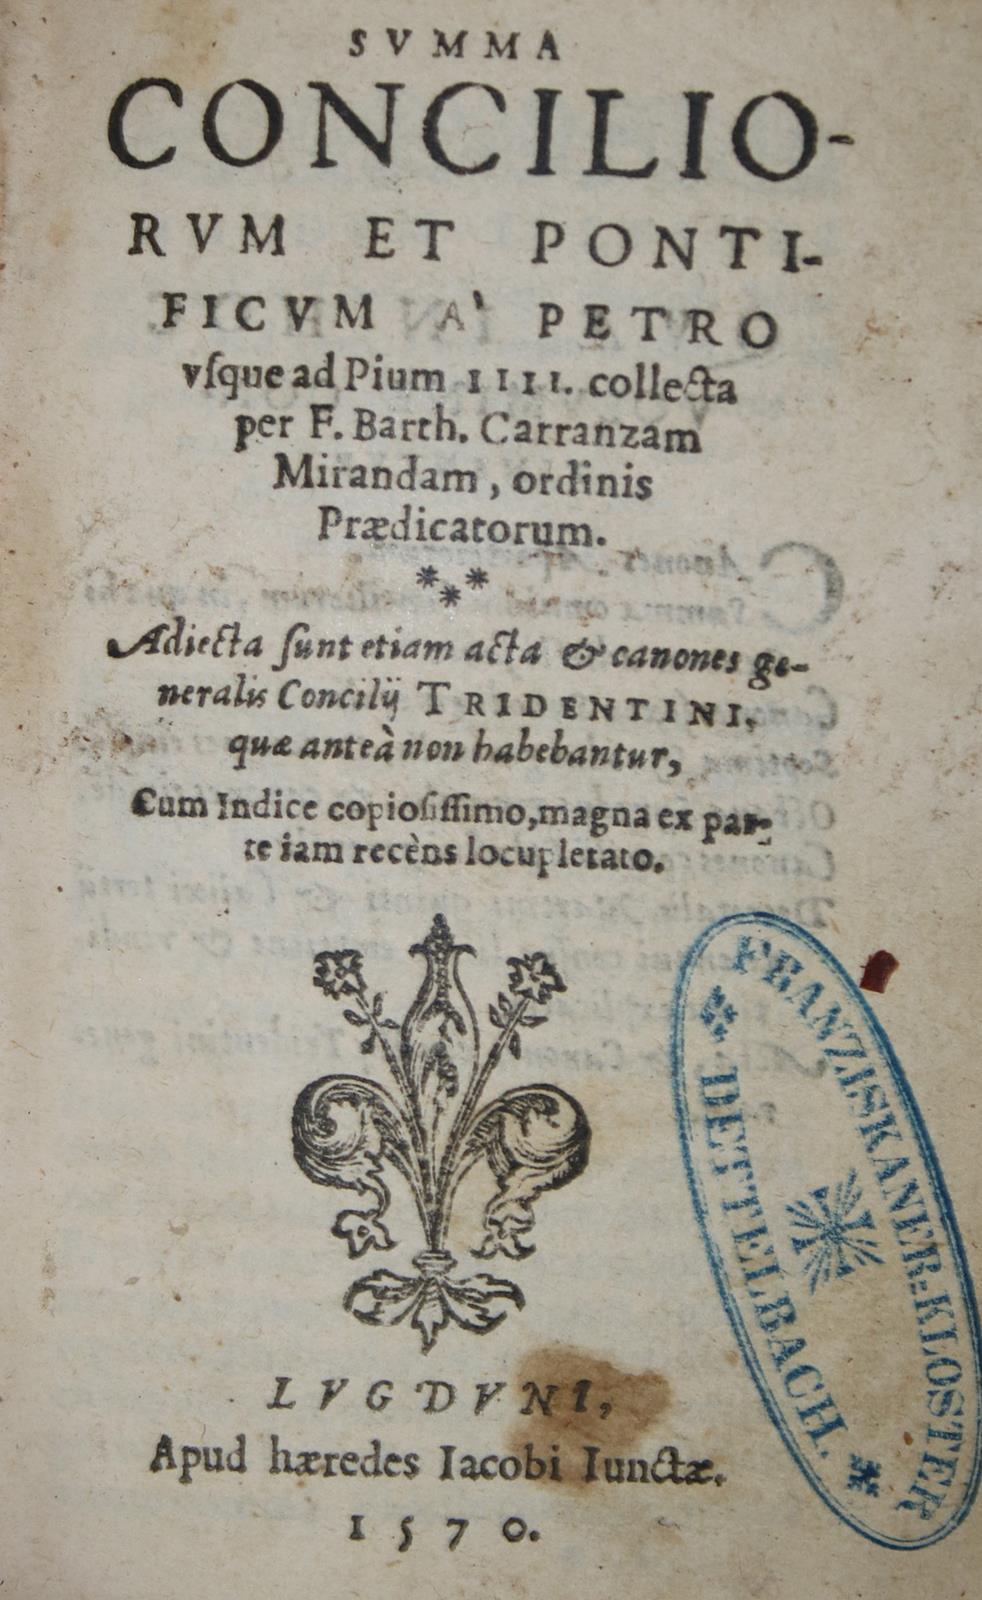 SVMMA
CONCILIO-
RVM ET PONTI-
FICVM A' PETRO
vſque ad Pium IIII. collecta
per F. Barth. Carranzam
Mirandam, ordinis
Prædicatorum.
***
Adiecta ſunt etiam acta & canones ge-
neralis Concilij TRIDENTINI,
quæ anteà non habebantur,
Cum Indice copioſiſſimo, magna ex par-
te iam recèns locupletato.
LVGDVNI,
Apud hæredes Iacobi Iunctæ.
1570.
FRANZISKANER=KLOSTER
DETTELBACH.